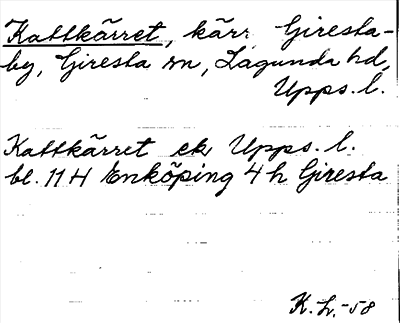 Kattkärret, kärr Giresta-
by, Giresta sn, Lagunda hd,
Upps. l.
Kattkärret ek Upps. l.
bl. 11 H Enköping 4 h Giresta
K. L. -58